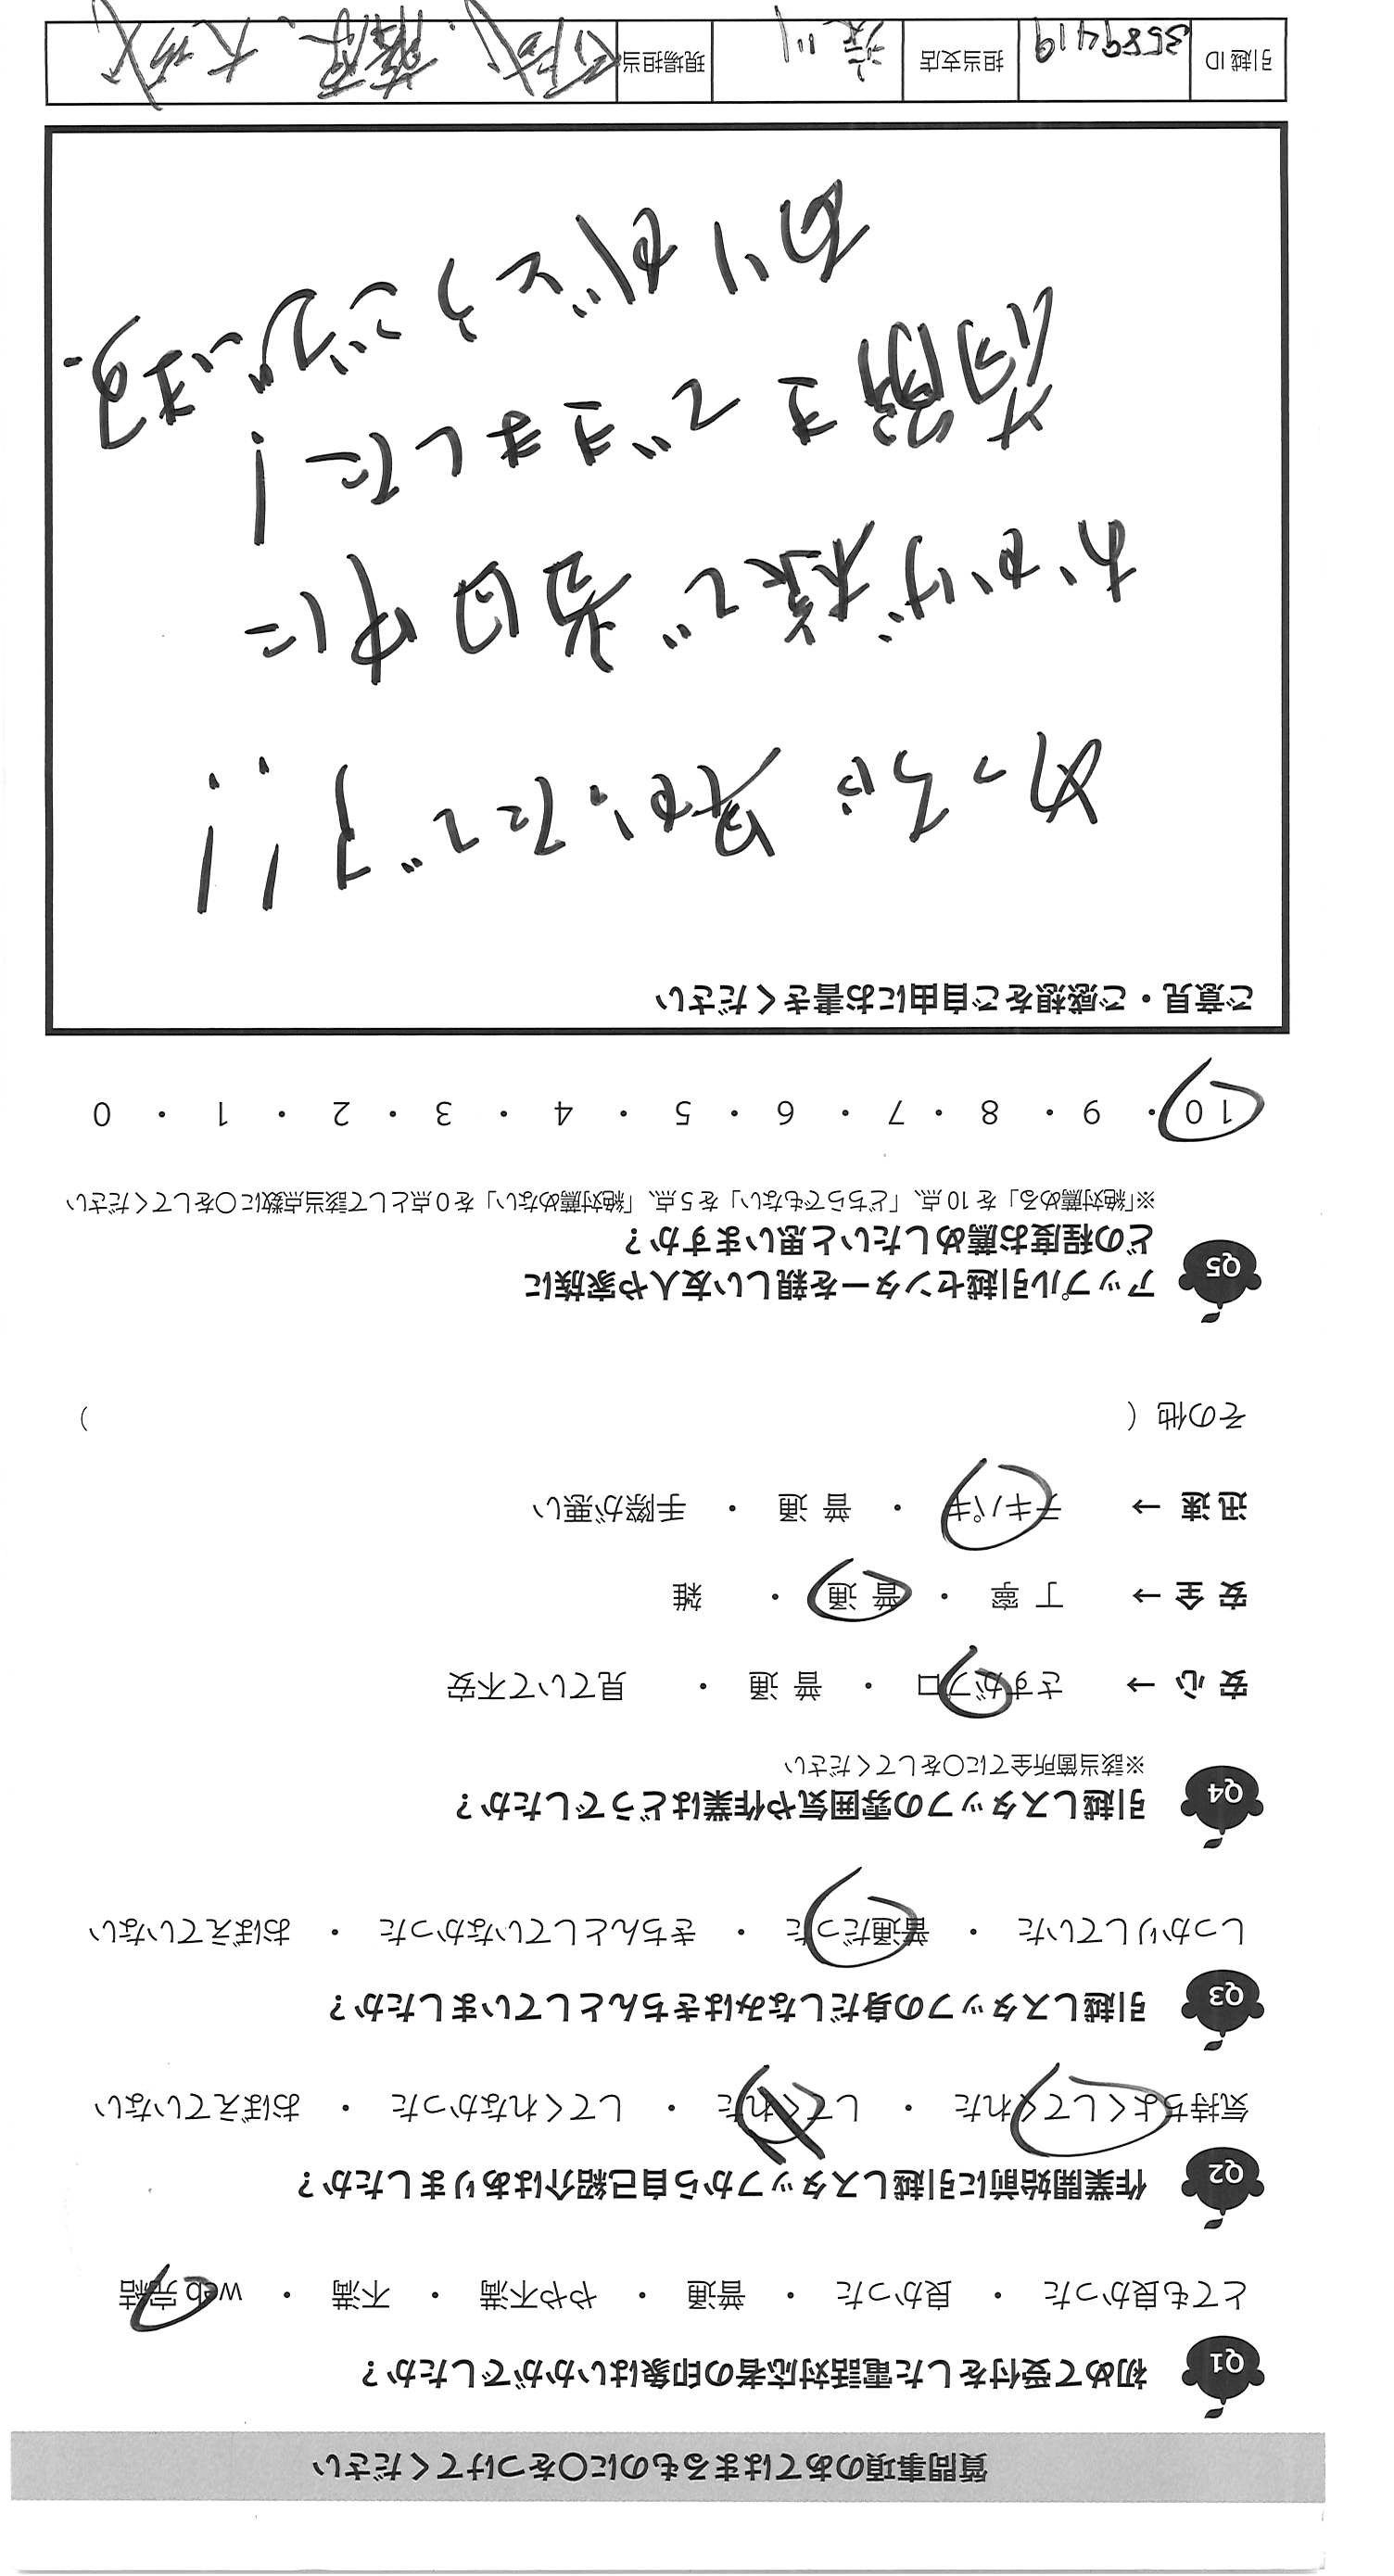 質問事項のあてはまるものに○をつけてください
Q1 初めて受付をした電話対応者の印象はいかがでしたか?
とても良かった ・ 良かった ・ 普通 ・ やや不満 ・ 不満 ・ web 完結
Q2 作業開始前に引越しスタッフから自己紹介はありましたか?
気持ちよくしてくれた ・ してくれた ・ してくれなかった ・ おぼえていない
Q3 引越しスタッフの身だしなみはきちんとしていましたか?
しっかりしていた ・ 普通だった ・ きちんとしていなかった ・ おぼえていない
Q4 引越しスタッフの雰囲気や作業はどうでしたか?
※該当箇所全てに○をしてください
安心→ さすがプロ ・ 普通 ・ 見ていて不安
安全→ 丁寧 ・ 普通 ・ 雑
迅速→ テキパキ ・ 普通 ・ 手際が悪い
その他 ( )
Q5 アップル引越センターを親しい友人や家族に
どの程度お薦めしたいと思いますか?
※「絶対薦める」を 10 点、「どちらでもない」を 5 点、「絶対薦めない」を 0 点として該当点数に○をしてください
10 ・ 9 ・ 8 ・ 7 ・ 6 ・ 5 ・ 4 ・ 3 ・ 2 ・ 1 ・ 0
ご意見・ご感想をご自由にお書きください
めっちゃ良かったです!!
おかげ様で当日中に
荷解きまでできました!
ありがとうございます。
引越 ID 3589419 担当支店 現場担当